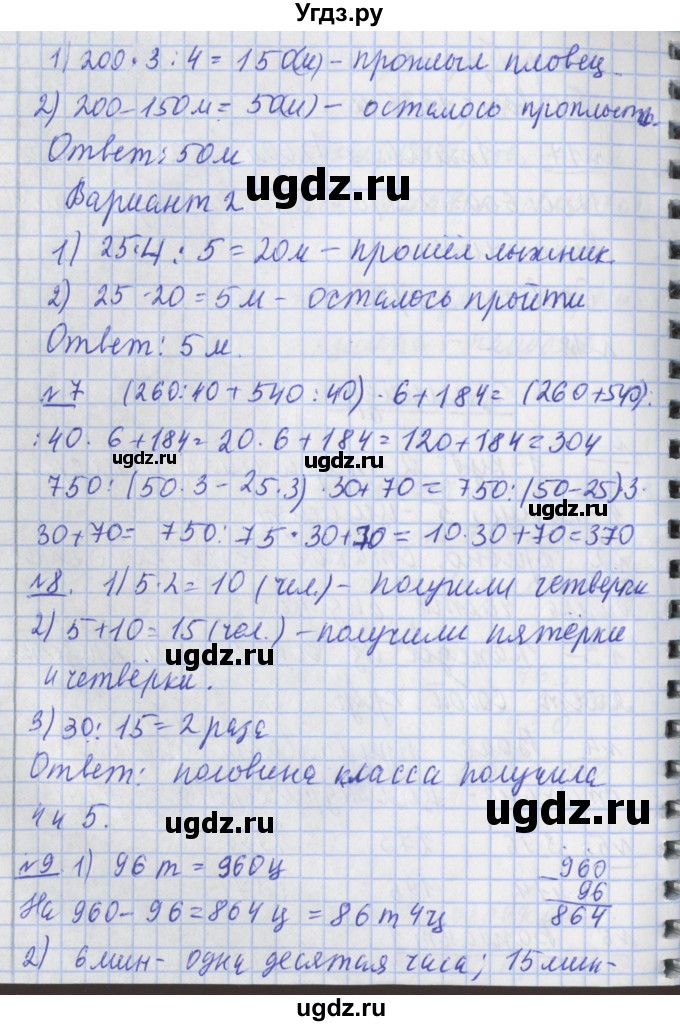 Угдз.ру
1) 200 · 3 : 4 = 150(м) - проплыл пловец.
2) 200 - 150м = 50(м) - осталось проплыть.
Ответ: 50м
ugdz.ru
Вариант 2
1) 25·4 : 5 = 20м - прошёл лыжник.
2) 25 - 20 = 5м - осталось пройти
Ответ: 5м.
ugdz.ru
№7 (260:40 + 540:40) · 6 + 184 = (260 + 540):
:40 · 6 + 184 = 20 · 6 + 184 = 120 + 184 = 304
ugdz.ru ugdz.ru
750 : (50·3 - 25·3) · 30 + 70 = 750 : (50-25)3·
ugdz.ru
30 + 70 = 750 : 75 · 30 + 70 = 10·30 + 70 = 370
№8. 1) 5·2 = 10 (чел.) - получили четвёрки
2) 5 + 10 = 15 (чел.) - получили пятёрки
ugdz.ru
и четвёрки.
3) 30 : 15 = 2 раза
Ответ: половина класса получила
4 и 5.
ugdz.ru ugdz.ru
№9 1) 96 т = 960ц 960
- 96
На 960 - 96 = 864 ц = 86 т 4ц 864
ugdz.ru ugdz.ru
2) 6 мин - одна десятая часа; 15 мин-
ugdz.ru